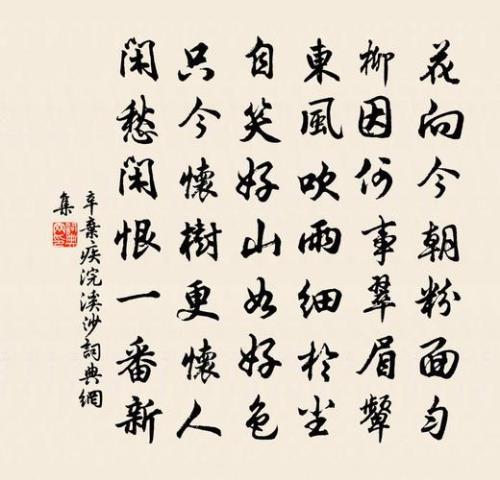 花向今朝粉面勻
柳因何事翠眉顰
東風吹雨細於塵
自笑好山如好色
只今懷樹更懷人
閑愁閑恨一番新
辛棄疾浣溪沙詞典網
集